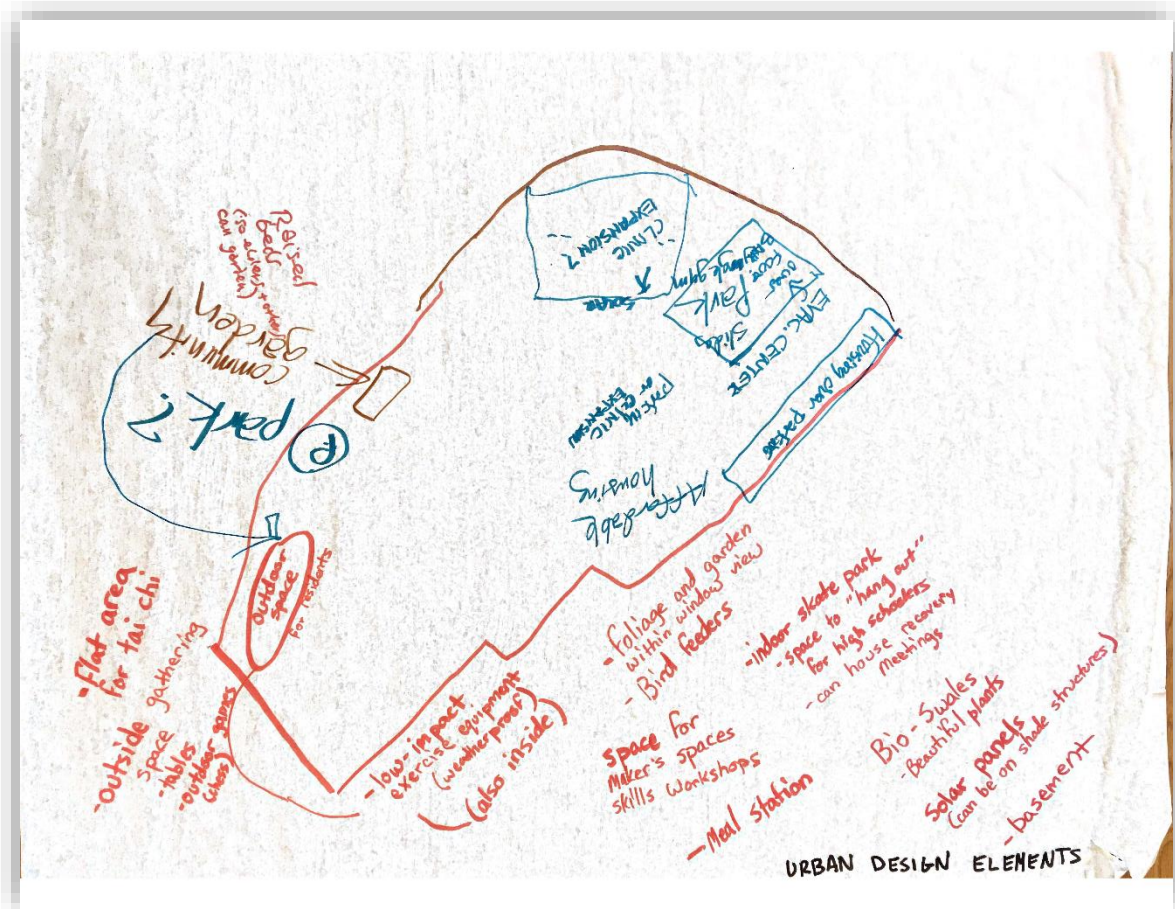 Raised
beds
(so elders + others
can garden)
community
garden
park?
P
CLINIC
EXPANSION?
SOLAR
jungle gym
Park
slides
EVAC. CENTER
Housing over parking
parking
or
CLINIC
EXPANSION
Affordable
housing
outdoor
space
for residents
- Flat area
for tai chi
- outside gathering
space
- tables
- outdoor games
(chess)
- low-impact
exercise equipment
(weatherproof)
(also inside)
- foliage and garden
within window view
- Bird feeders
space for
maker's spaces
skills workshops
- Meal station
- indoor skate park
- space to "hang out"
for high schoolers
- can house recovery
meetings
Bio-Swales
- Beautiful plants
solar panels
(can be on shade structures)
- basement
URBAN DESIGN ELEMENTS